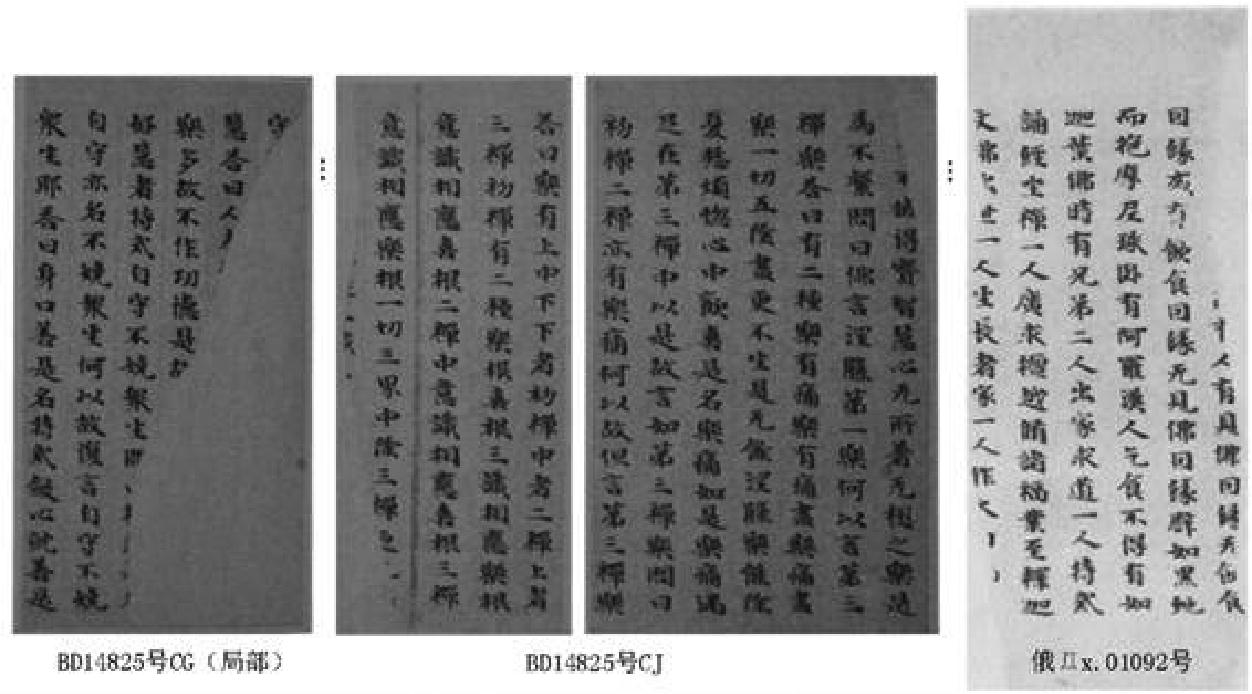 守
慧答曰人
樂多故不作功德是故
好慧者持戒自守不嬈衆生即
自守亦名不嬈衆生何以故復言自守不嬈
衆生耶答曰身口善是名持戒斂心就善是
BD14825号CG（局部）
…
情得實智慧心无所著无相之樂是
爲不繫問曰佛言涅槃第一樂何以言第三
禪樂答曰有二種樂有痛樂有痛盡樂痛盡
樂一切五陰盡更不生是无餘涅槃樂能除
憂愁煩惱心中歡喜是名樂痛如是樂痛滿
足在第三禪中以是故言如第三禪樂問曰
初禪二禪亦有樂痛何以故但言第三禪樂
答曰樂有上中下下者初禪中者二禪上者
三禪初禪有二種樂根喜根三識相應樂根
意識相應喜根二禪中意識相應喜根三禪
意識相應樂根一切三界中除三禪更
BD14825号CJ
…
人有見佛因緣无飲食
因緣或有飲食因緣无見佛因緣譬如黑虵
而抱摩尼珠卧有阿羅漢人乞食不得有如
迦葉佛時有兄弟二人出家求道一人持戒
誦經坐禪一人廣求檀越脩諸福業至釋迦
文佛出世一人生長者家一人作大
俄Дx.01092号